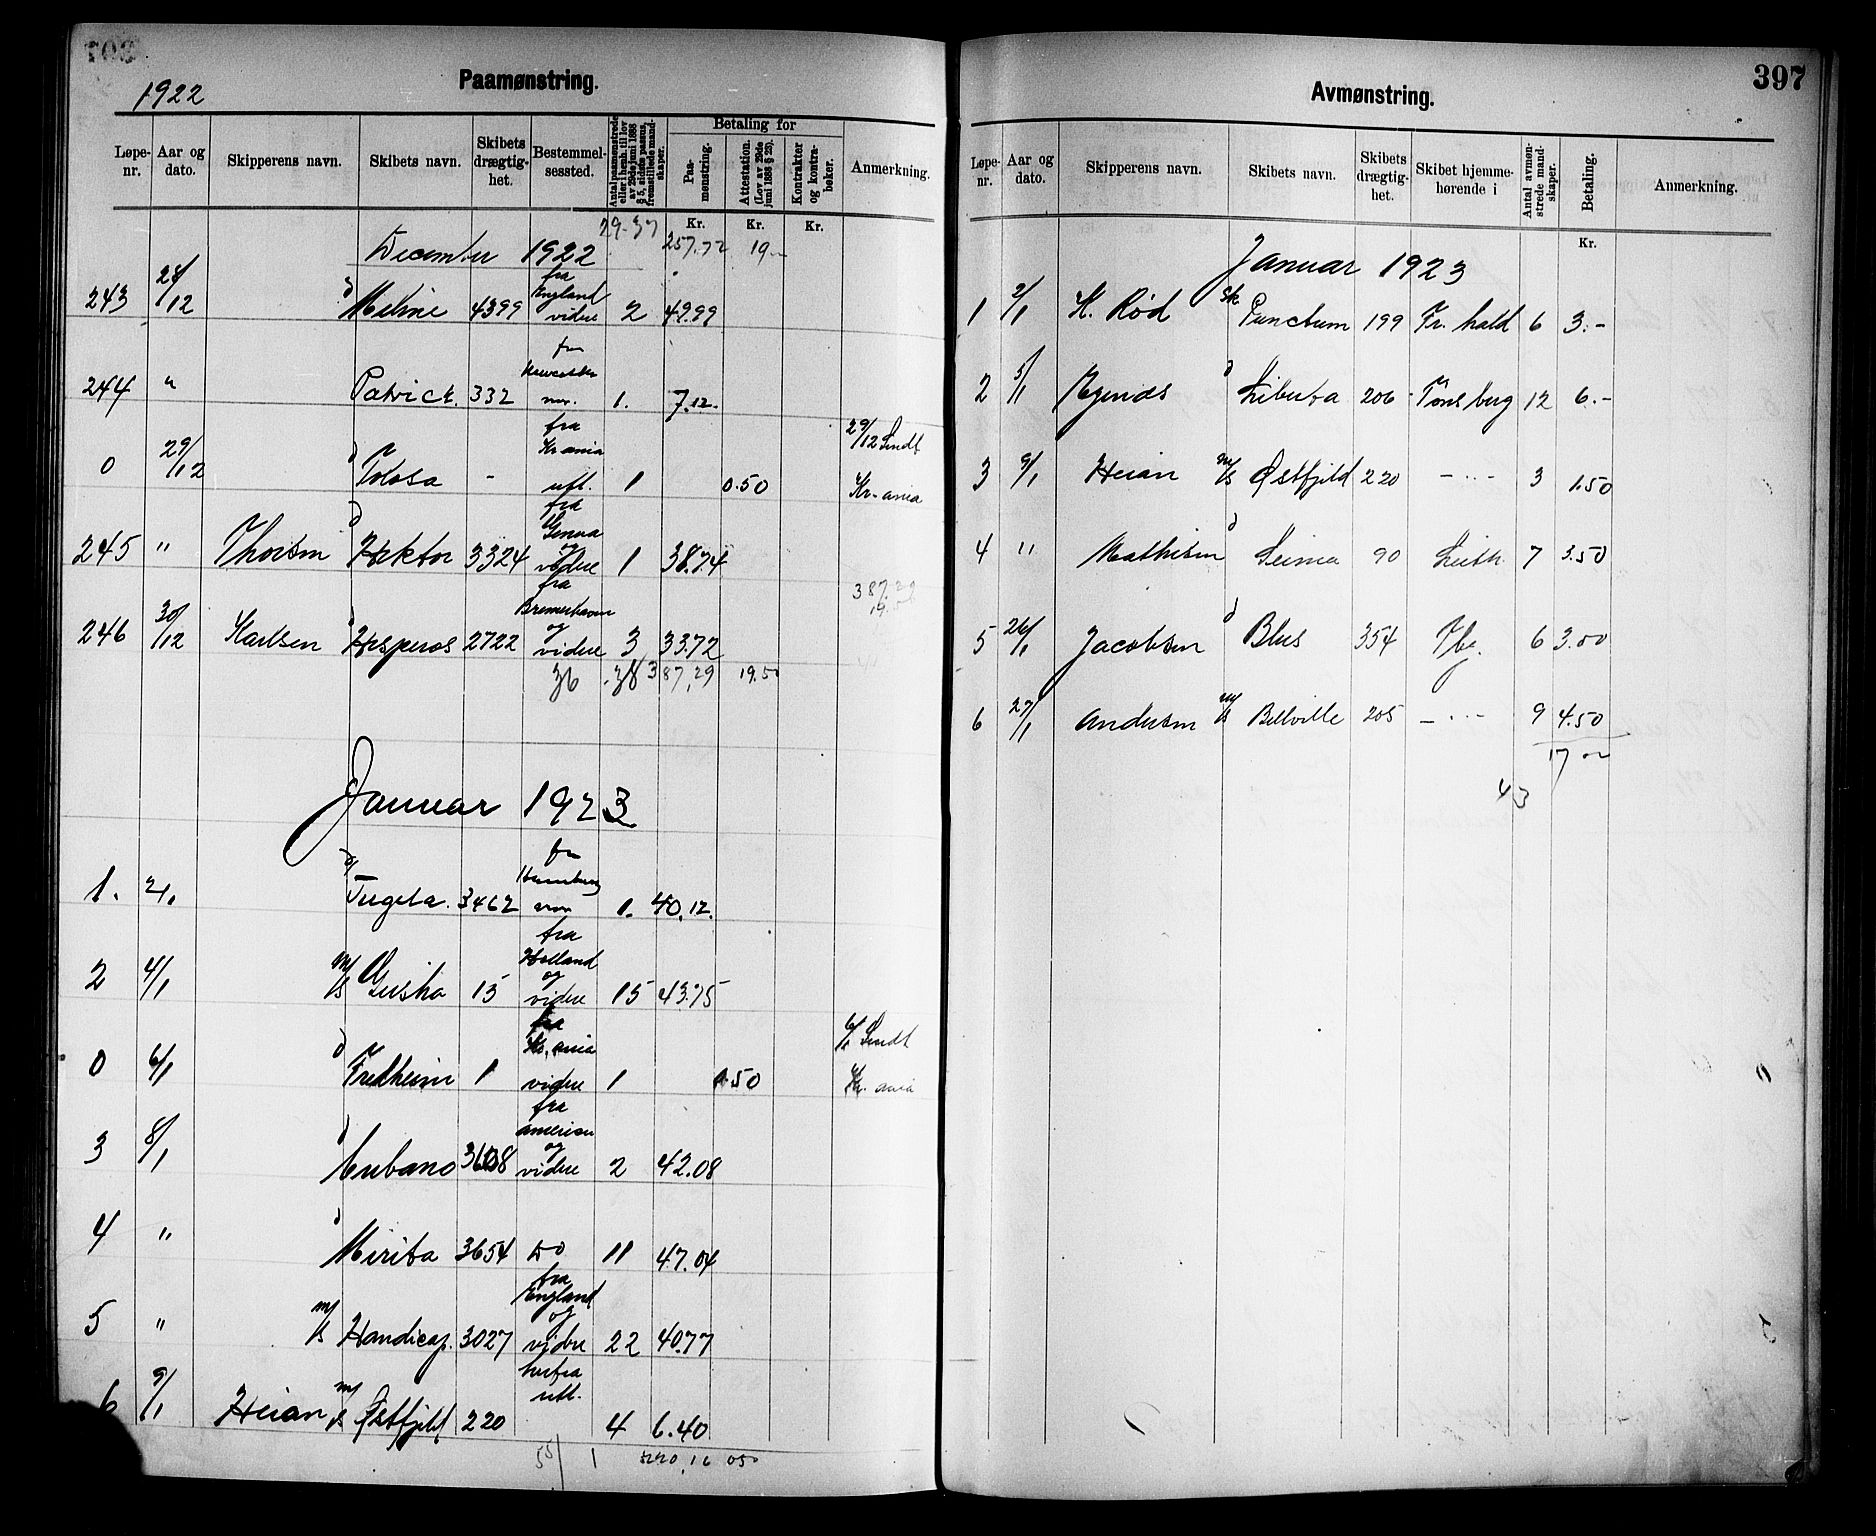 1922
Paamønstring.
Løpe-nr. Aar og dato. Skipperens navn. Skibets navn. Skibets drægtig-het. Bestemmel-sessted. Antal paamønstrede eller i henh. til lov av 29de juni 1888 § 5, sidste passus, fremstillede mand-skaper. Betaling for Paa-mønstring. Attestation. (Lov av 29de juni 1888 § 25). Kontrakter og kontra-bøker. Anmerkning.
Kr. Kr. Kr.
29-37
December 1922 257.72 19.-
243 28/12 d Melmi 4399 fra England videre 2 49.99
244 " Patrick. 332 fra Newcastle 1. 7.12.
0 29/12 d Tolosa - fra Kr.ania utl. 1 0.50 29/12 Sendt Kr.ania
245 " Thorsen d Hektor 3324 fra Genua og videre 1 38.74
387.29
19.50
246 30/12 Karlsen d Hesperos 2722 fra Bremerhaven og videre 3 33.72
36 38 387,29 19.50
Januar 1923
1. 2/1 d/ Tugela. 3462 fra Hamburg 1. 40.12.
2 4/1 M/S Geisha 15 fra Holland og videre 15 43.75
0 6/1 d Fredheim 1 fra Kr.ania videre 1 0.50 6/1 Sendt Kr.ania
3 8/1 d Cubano 3608 fra Amerika og videre 2 42.08
4 " d Mirita 3654 Do 11 47.04
5 " M/S Handicap. 3027 fra England og videre 22 40.77
6 9/1 Heian M/S Østfjeld 220 herfra utl. 4 6.40
55/ 1 220,16 050
397
Avmønstring.
Løpe-nr. Aar og dato. Skipperens navn. Skibets navn. Skibets drægtig-het. Skibet hjemme-hørende i Antal avmøn-strede mand-skaper. Betaling. Anmerkning.
Kr.
Januar 1923
1 2/1 K. Rød Sk Punctum 199 Fr.hald 6 3.-
2 5/1 d Liberta 206 Tønsberg 12 6.-
3 9/1 Heian M/S Østfjeld 220 - " - 3 1.50
4 " Mathisen d Leima 90 Leith. 7 3.50
5 26/1 Jacobsen d Blus 354 Tbg. 6 3.00
6 27/1 Andersen M/S Bellville 205 - " - 9 4.50
17 00
43